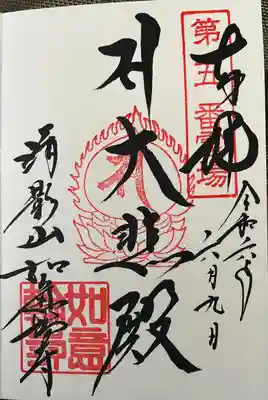 第五番霊場
奉拝
令和六年
八月九日
大悲殿
清影山 如意輪寺
如意
輪寺